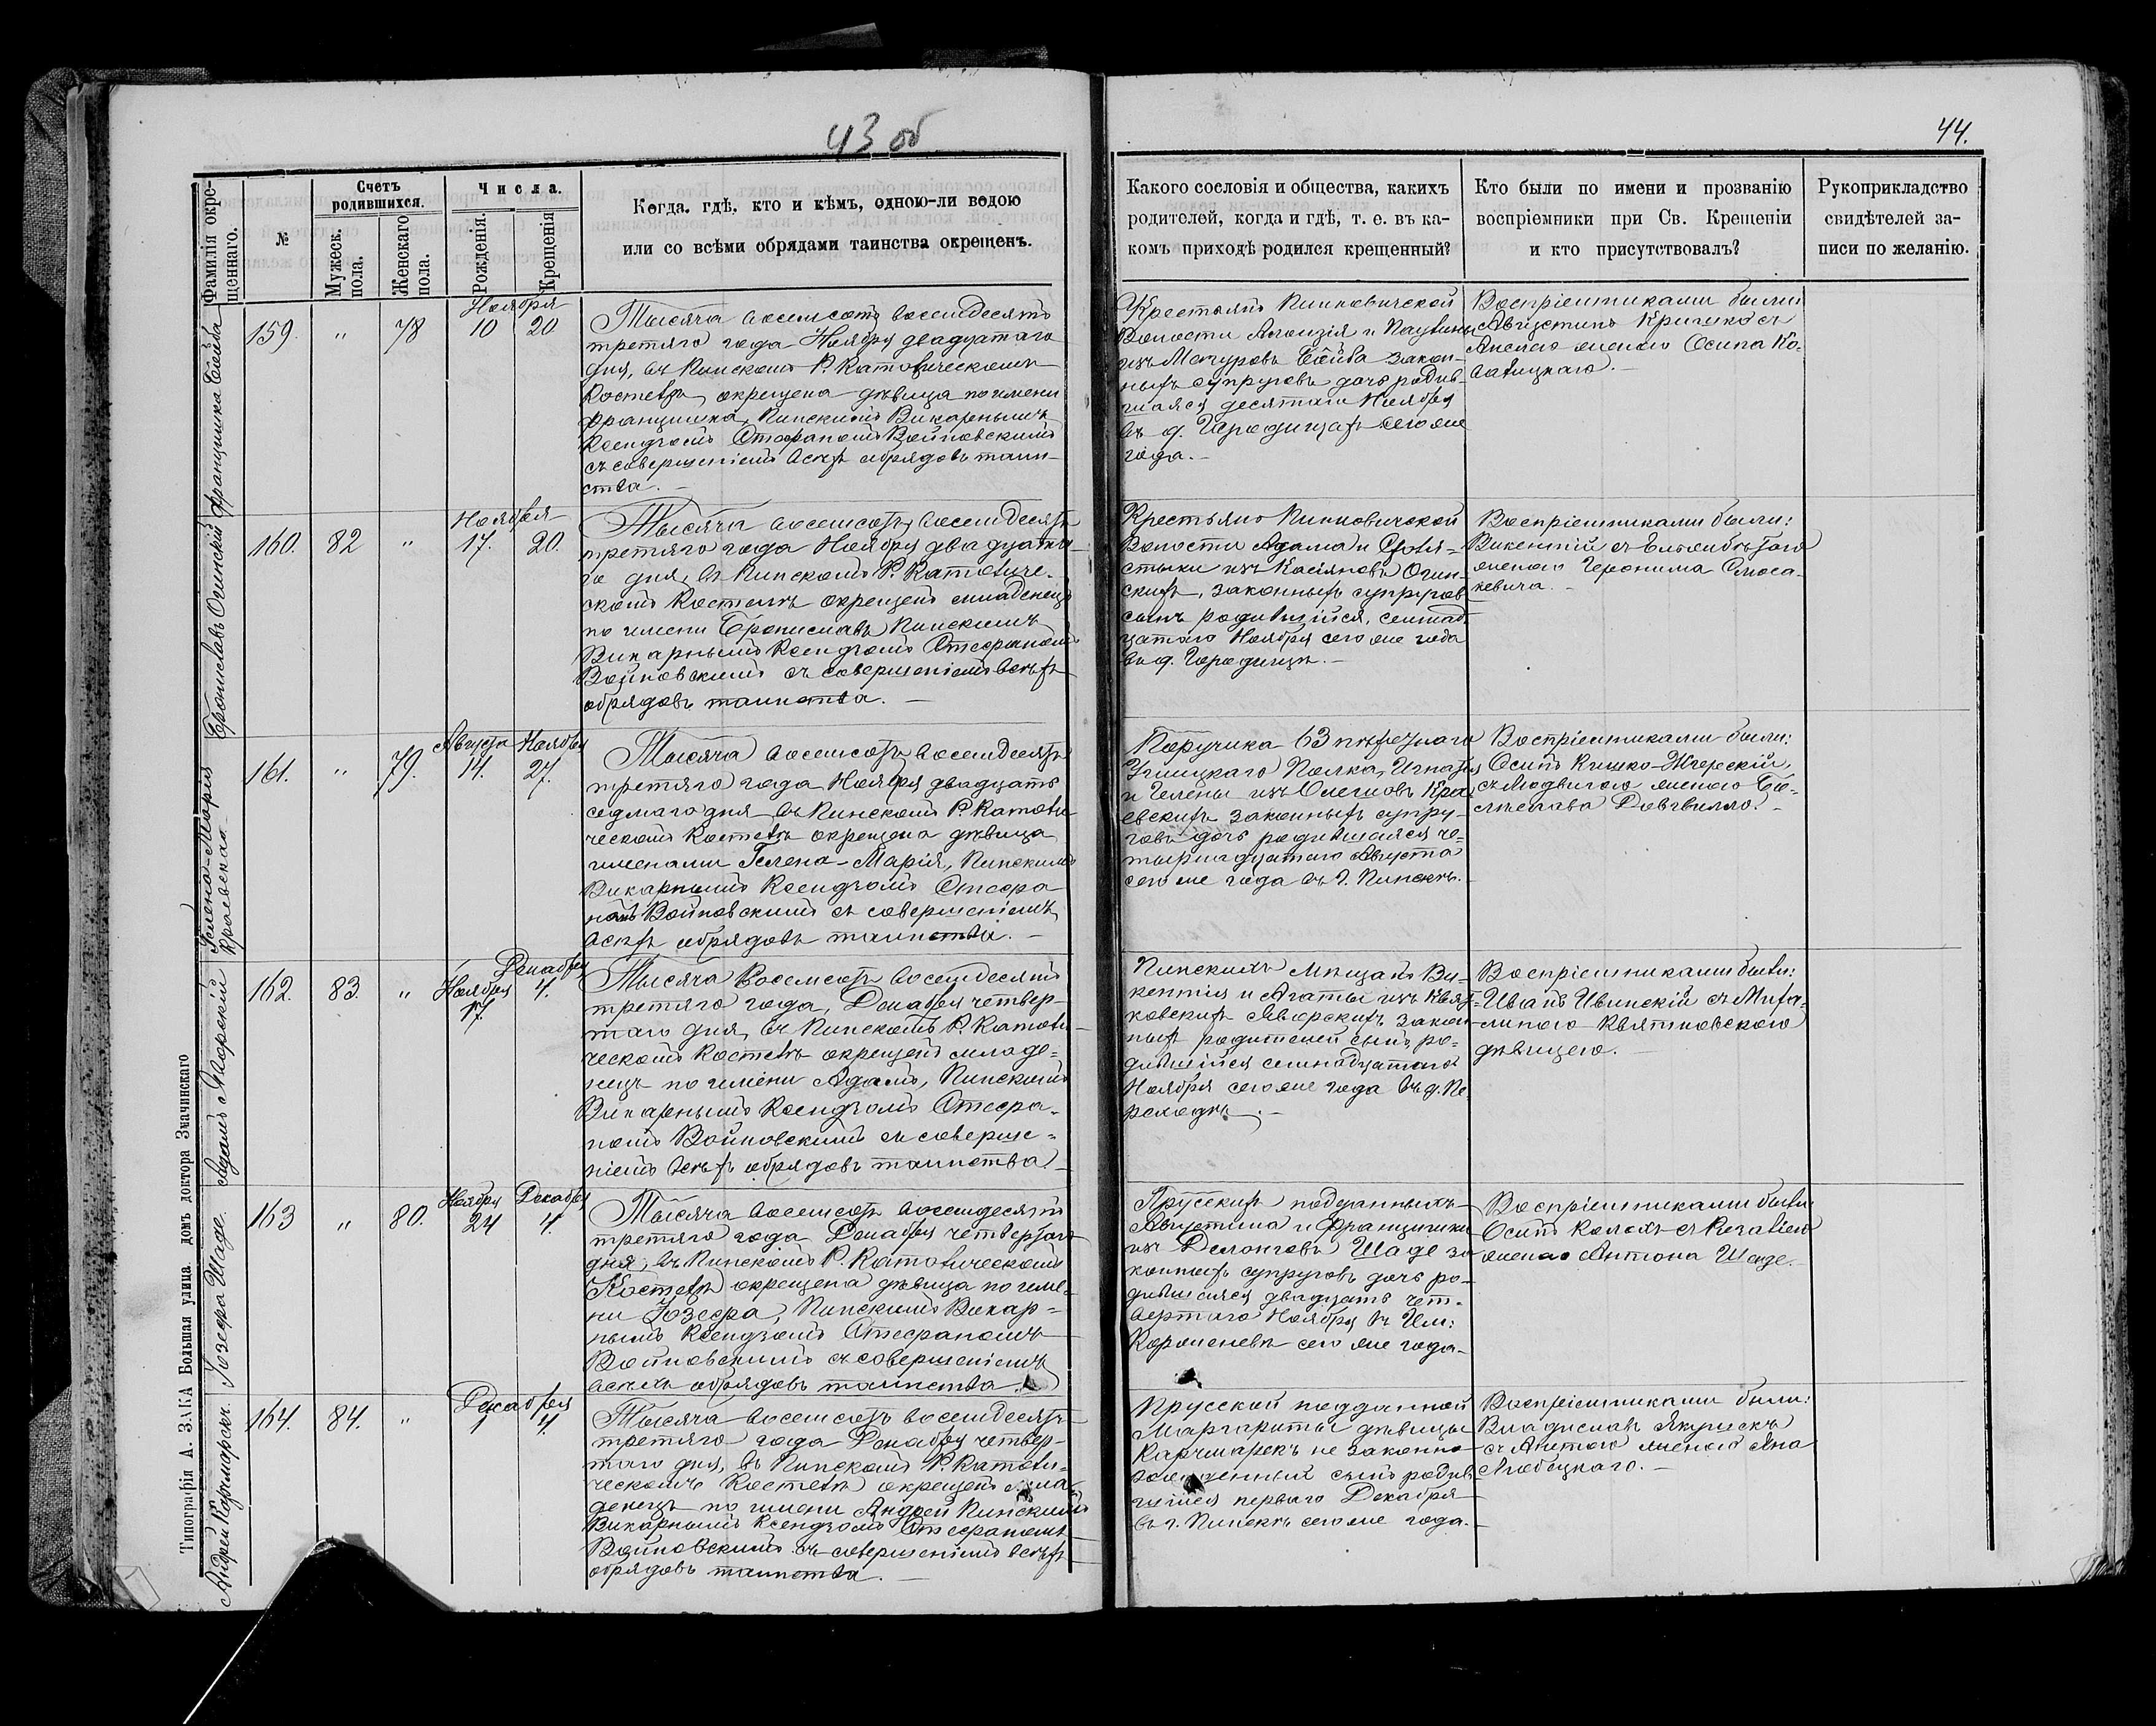 43 об
44.
Фамилія окре-
щеннаго.
№
Счетъ
родившихся.
Мужеск.
пола.
Женскаго
пола.
Числа.
Рожденія.
Крещенія
Когда, гдѣ, кто и кѣмъ, одною-ли водою
или со всѣми обрядами таинства окрещенъ.
Какого сословія и общества, какихъ
родителей, когда и гдѣ, т. е. въ ка-
комъ приходѣ родился крещенный?
Кто были по имени и прозванію
воспріемники при Св. Крещеніи
и кто присутствовалъ?
Рукоприкладство
свидѣтелей за-
писи по желанію.
Францишка
159.
"
78
Ноября
10 20
Тысяча восемсотъ восемдесятъ
третяго года Ноября двадцатаго
дня, въ Пинскомъ Р. Католическомъ
Костелѣ окрещена дѣвица по имени
Францишка, Пинскимъ Викарнымъ
Ксендзомъ Стефаномъ Войновскимъ
съ совершеніемъ всѣхъ обрядовъ таин-
ства. –
Крестьянъ
Волости и Паулины
изъ закон-
ныхъ супруговъ дочь родив-
шаяся десятаго Ноября
въ д. Городищахъ сего же
года. –
Воспріемниками были
Августинъ съ
женою Осипа Ко-
Брониславъ Огинскій
160.
82
"
Ноября
17. 20.
Тысяча восемсотъ восемдесятъ
третяго года Ноября двадцата-
го дня, въ Пинскомъ Р. Католиче-
скомъ Костелѣ окрещенъ младенецъ
по имени Брониславъ, Пинскимъ
Викарнымъ Ксендзомъ Стефаномъ
Войновскимъ съ совершеніемъ всѣхъ
обрядовъ таинства. –
Крестьянъ
Волости Адама и
изъ Касяновъ Огин-
скихъ, законныхъ супруговъ
сынъ родившійся, семнад-
цатаго Ноября сего же года
въ д. Городищѣ. –
Воспріемниками были:
Викентій съ Ельжбѣтою
женою Геронима
Гелена-Марія
Краевская
161.
"
79.
Августа Ноября
14. 27.
Тысяча восемсотъ восемдесятъ
третяго года Ноября двадцать
седмаго дня въ Пинскомъ Р. Католи-
ческомъ Костелѣ окрещена дѣвица
именами Гелена-Марія, Пинскимъ
Викарнымъ Ксендзомъ Стефа-
номъ Войновскимъ съ совершеніемъ
всѣхъ обрядовъ таинства. –
Поручика 63 пѣхотнаго
Углицкаго Полка, Игнатія
и Гелены изъ Кра-
евскихъ законныхъ супру-
говъ дочь родившаяся че-
тырнадцатаго Августа
сего же года въ г. Пинскѣ.
Воспріемниками были:
Осипъ Кишко-Жгерскій
съ Людвигою женою Бо-
леслава Довгвилло. –
Адамъ Яворскій
162.
83.
"
Ноября Декабря
17. 4.
Тысяча восемсотъ восемдесятъ
третяго года, Декабря четвер-
таго дня, въ Пинскомъ Р. Католи-
ческомъ Костелѣ окрещенъ младе-
нецъ по имени Адамъ, Пинскимъ
Викарнымъ Ксендзомъ Стефа-
номъ Войновскимъ съ соверше-
ніемъ всѣхъ обрядовъ таинства
Пинскихъ мѣщанъ Ви-
кентія и Агаты изъ Квят-
ковскихъ Яворскихъ закон-
ныхъ родителей сынъ ро-
дившійся семнадцатаго
Ноября сего же года въ д.
Воспріемниками были:
Иванъ Ивинскій съ Миха-
линою Квятковскою
дѣвицею. –
Іозефа Шаде.
163
"
80.
Ноября Декабря
24 4.
Тысяча восемсотъ восемдесятъ
третяго года Декабря четвертаго
дня, въ Пинскомъ Р. Католическомъ
Костелѣ окрещена дѣвица по име-
ни Іозефа, Пинскимъ Викар-
нымъ Ксендзомъ Стефаномъ
Войновскимъ съ совершеніемъ
всѣхъ обрядовъ таинства.
Прусскихъ подданныхъ
Августина и Францишки
изъ Шаде за-
конныхъ супруговъ дочь ро-
дившаяся двадцать чет-
вертаго Ноября въ Им:
сего же года.
Воспріемниками были
Осипъ съ
женою Антона Шаде.
Андрей Карчмарекъ.
164.
84.
"
Декабря
1 4.
Тысяча восемсотъ восемдесятъ
третяго года Декабря четвер-
таго дня, въ Пинскомъ Р. Католи-
ческомъ Костелѣ окрещенъ мла-
денецъ по имени Андрей Пинскимъ
Викарнымъ Ксендзомъ Стефаномъ
Войновскимъ съ совершеніемъ всѣхъ
обрядовъ таинства. –
Прусской подданной
Маргариты дѣвицы
Карчмарекъ не законно
рожденный сынъ родив-
шійся перваго Декабря
въ г. Пинскѣ сего же года.
Воспріемниками были:
Владиславъ Якушекъ
съ Анетою женою Яна
Типографія А. ЗАКА Большая улица домъ доктора Змачинскаго